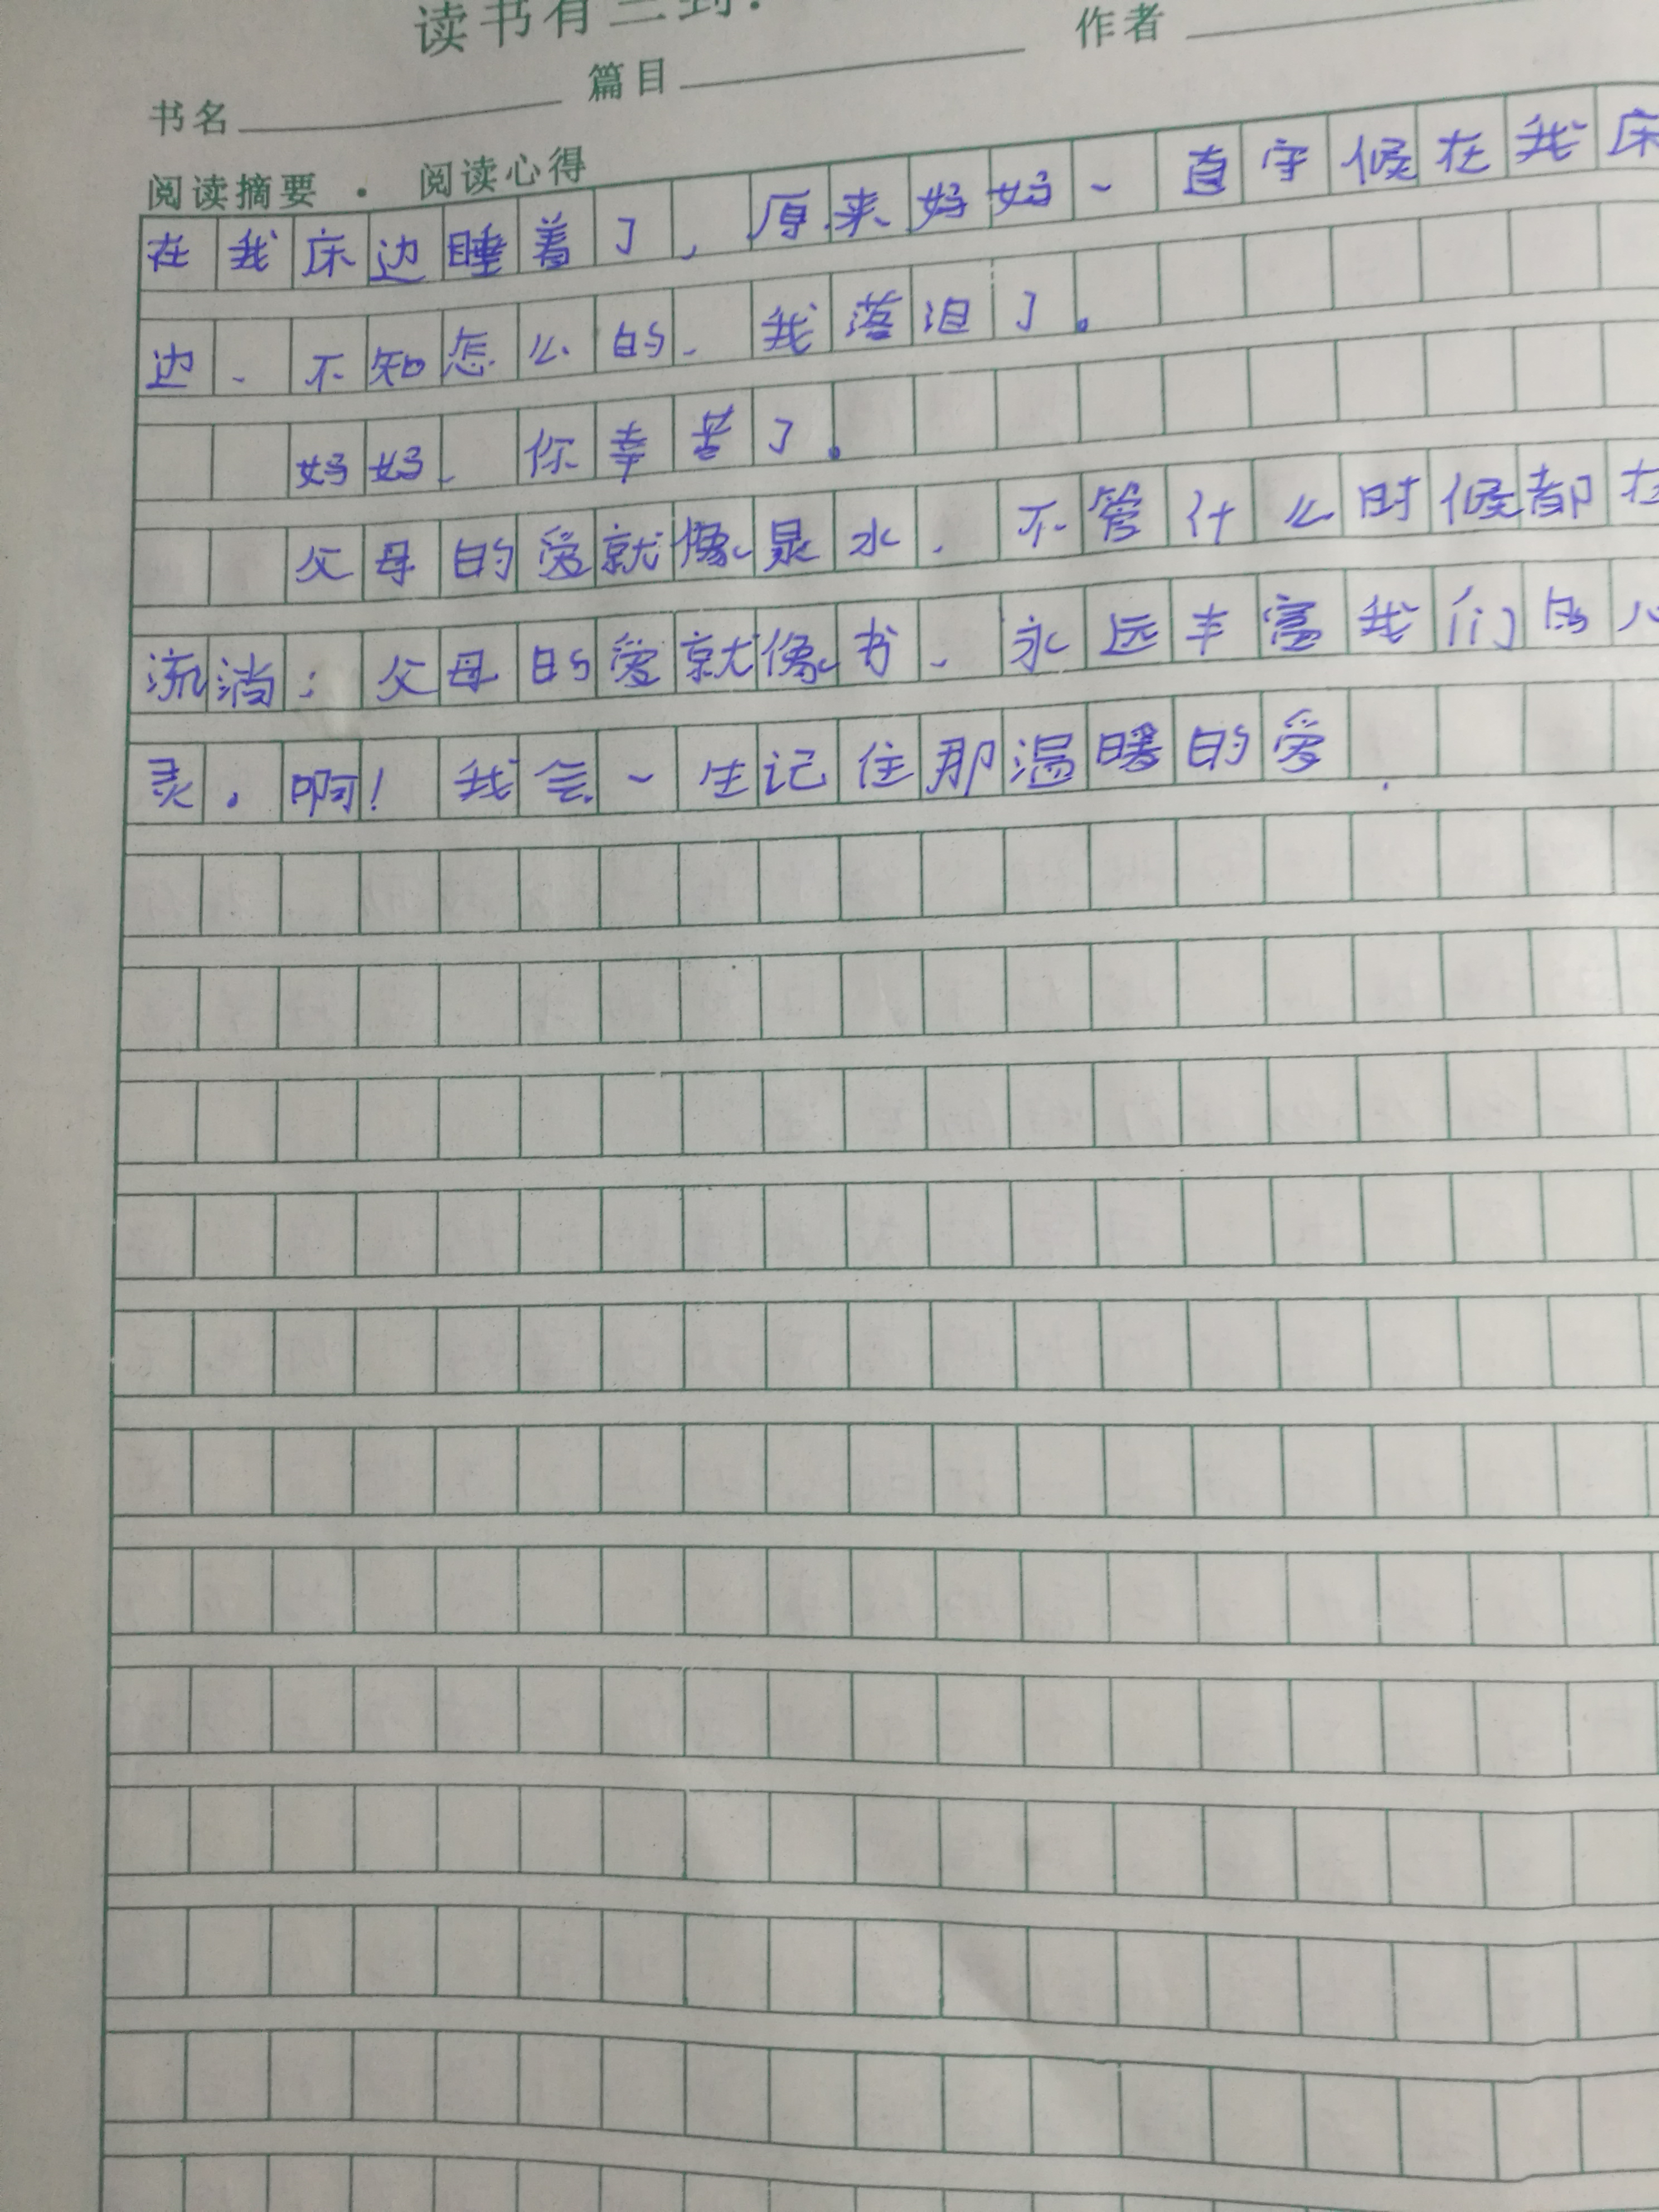 读书有三到:
书名 篇目 作者
阅读摘要 · 阅读心得
在我床边睡着了,原来妈妈一直守候在我床
边、不知怎么的、我落泪了。
妈妈、你幸苦了。
父母的爱就像泉水,不管什么时候都在
流淌;父母的爱就像书、永远丰富我们的心
灵。啊!我会一生记住那温暖的爱.